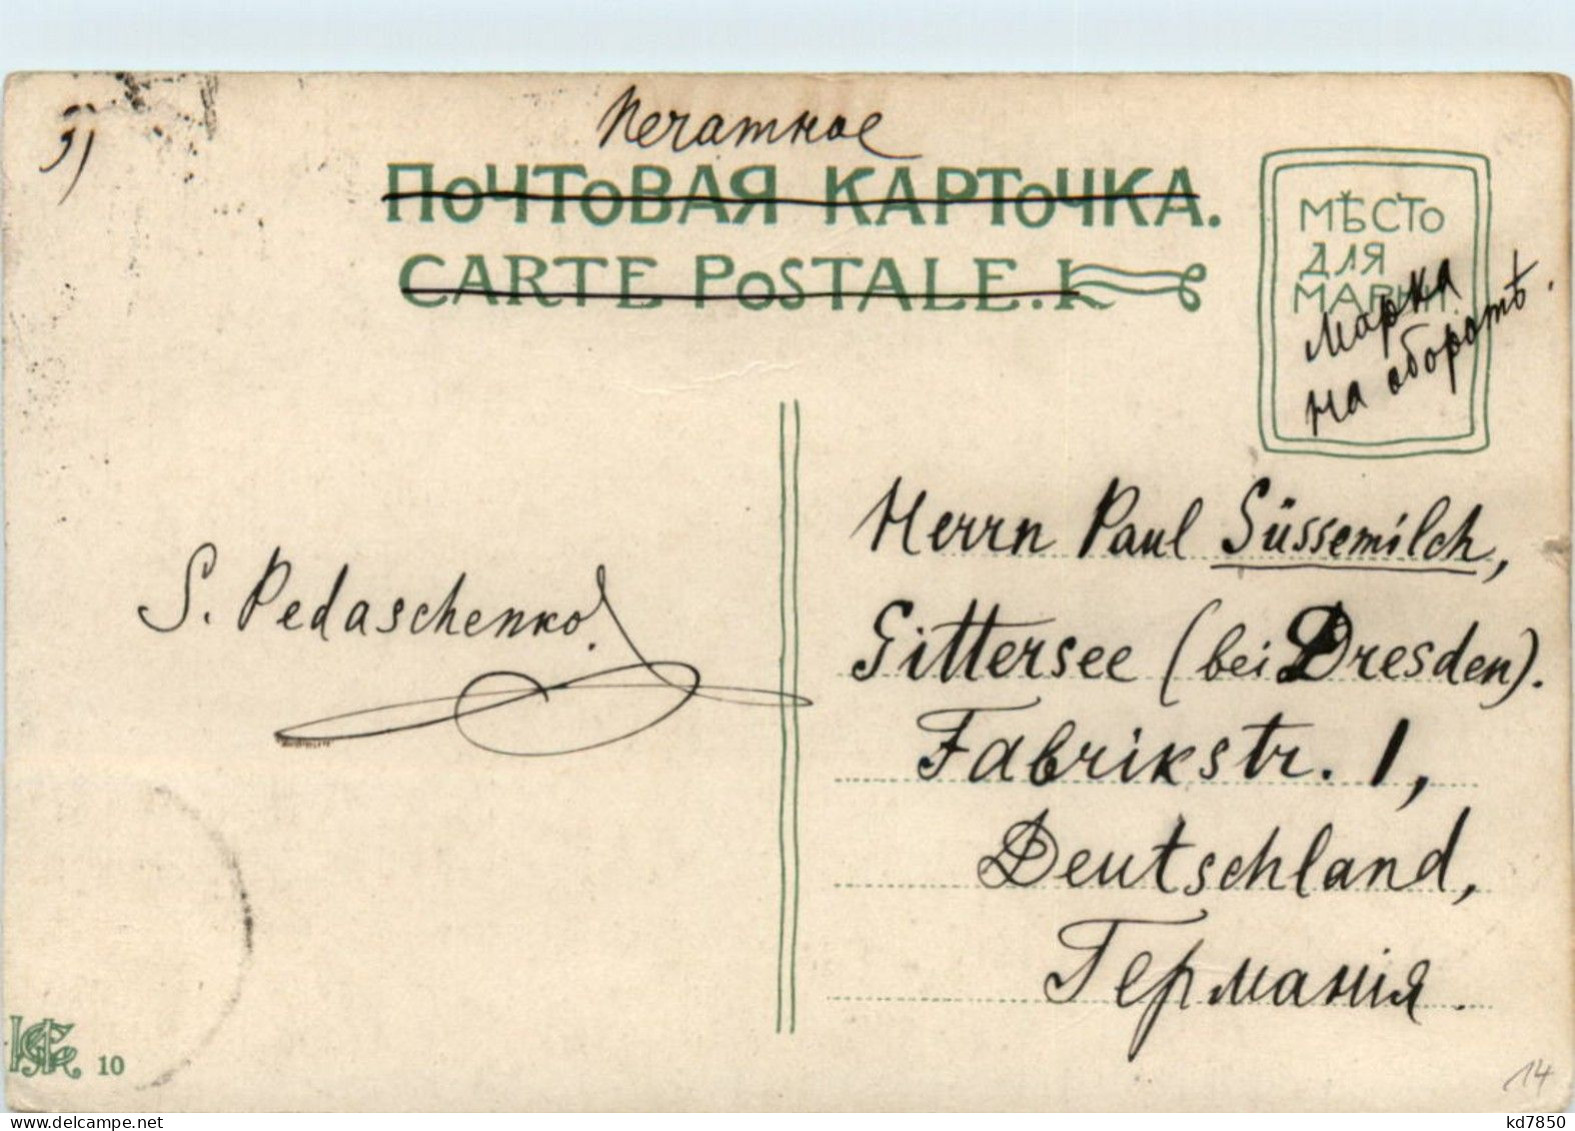 Печатное
ПОЧТОВАЯ КАРТОЧКА.
CARTE POSTALE.
МѢСТО
ДЛЯ
МАРКИ.
Марка
на оборотѣ.
S. Pedaschenko.
Herrn Paul Süssemilch,
Gittersee (bei Dresden).
Fabrikstr. 1,
Deutschland,
Германія.
10
14
www.delcampe.net
kd7850